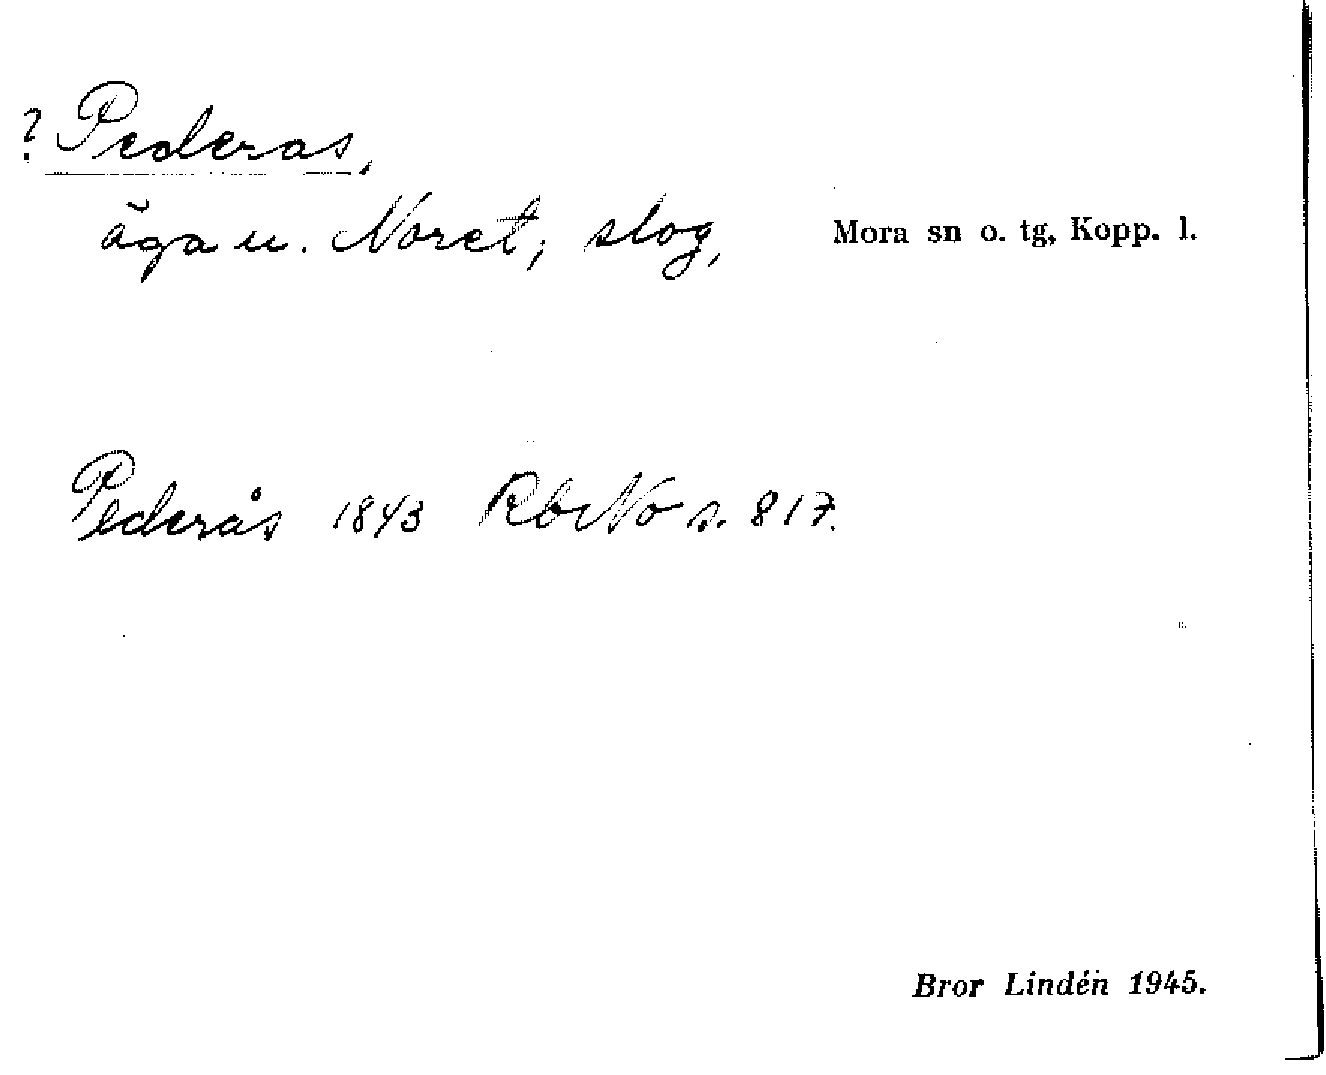 ? Pederas,
äga u. Noret; slog, Mora sn o. tg, Kopp. l.
Pederås 1843 RbNo s. 817.
Bror Lindén 1945.